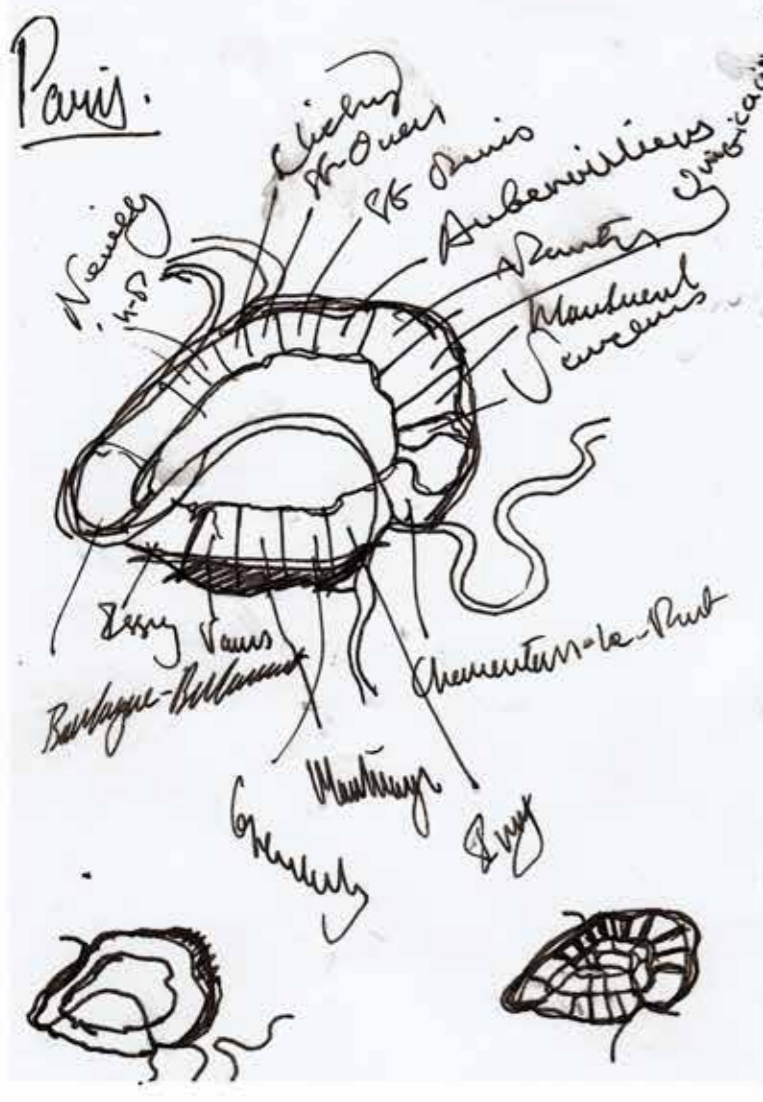 Paris.
Clichy
St-Ouen
St Denis
Aubervilliers
Montreuil
Vincennes
Issy
Vanves
Boulogne-Billancourt
Charenton-le-Pont
Montrouge
Gentilly
Ivry